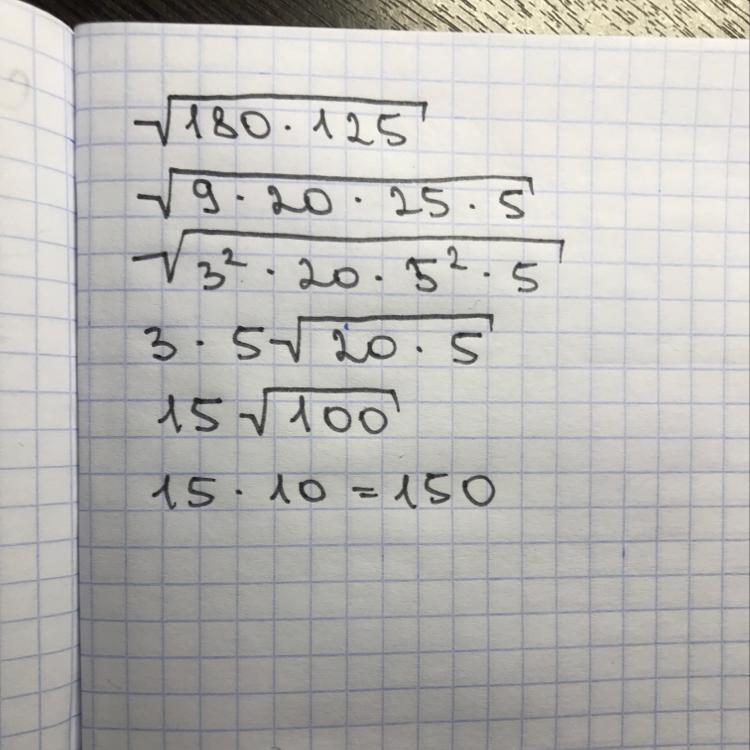 √180 · 125
√9 · 20 · 25 · 5
√3² · 20 · 5² · 5
3 · 5√20 · 5
15√100
15 · 10 = 150